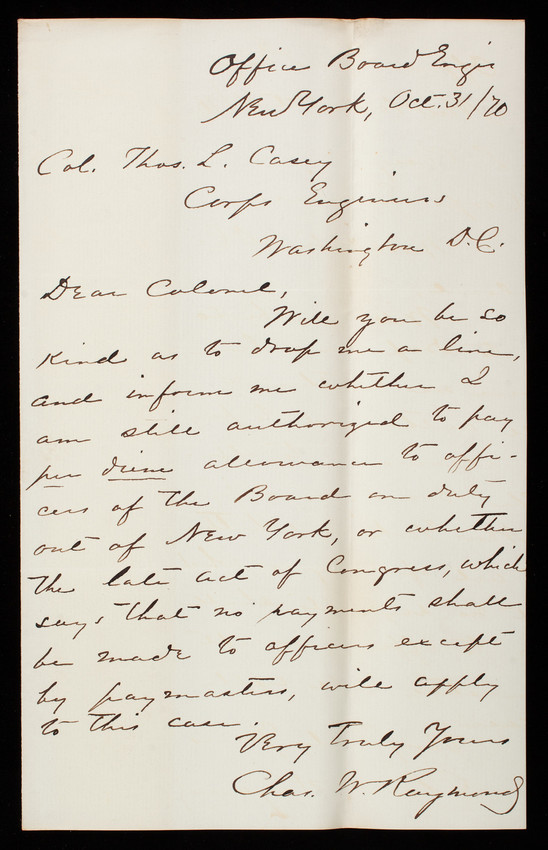 Office Board Engrs
New York, Oct. 31/70
Col. Thos. L. Casey
Corps Engineers
Washington D.C.
Dear Colonel,
Will you be so
kind as to drop me a line,
and inform me whether I
am still authorized to pay
per diem allowance to offi-
cers of the Board on duty
out of New York, or whether
the late act of Congress, which
says that no payments shall
be made to officers except
by paymasters, will apply
to this case.
Very Truly Yours
Chas. W. Raymond